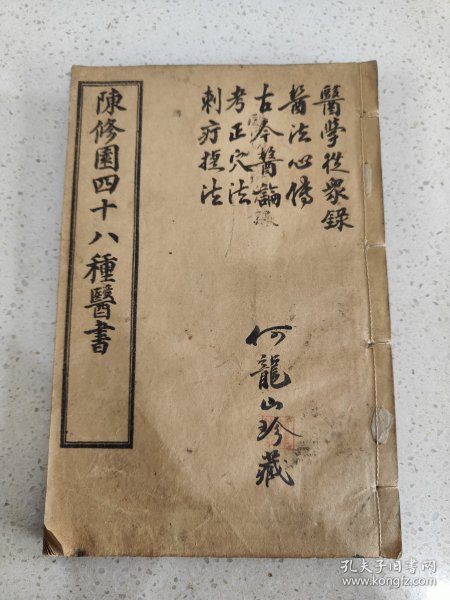 醫學從眾錄
醫法心傳
古今醫論
考正穴法
刺疔捷法
何龍山珍藏
陳修園四十八種醫書
孔夫子旧书网
www.kongfz.com